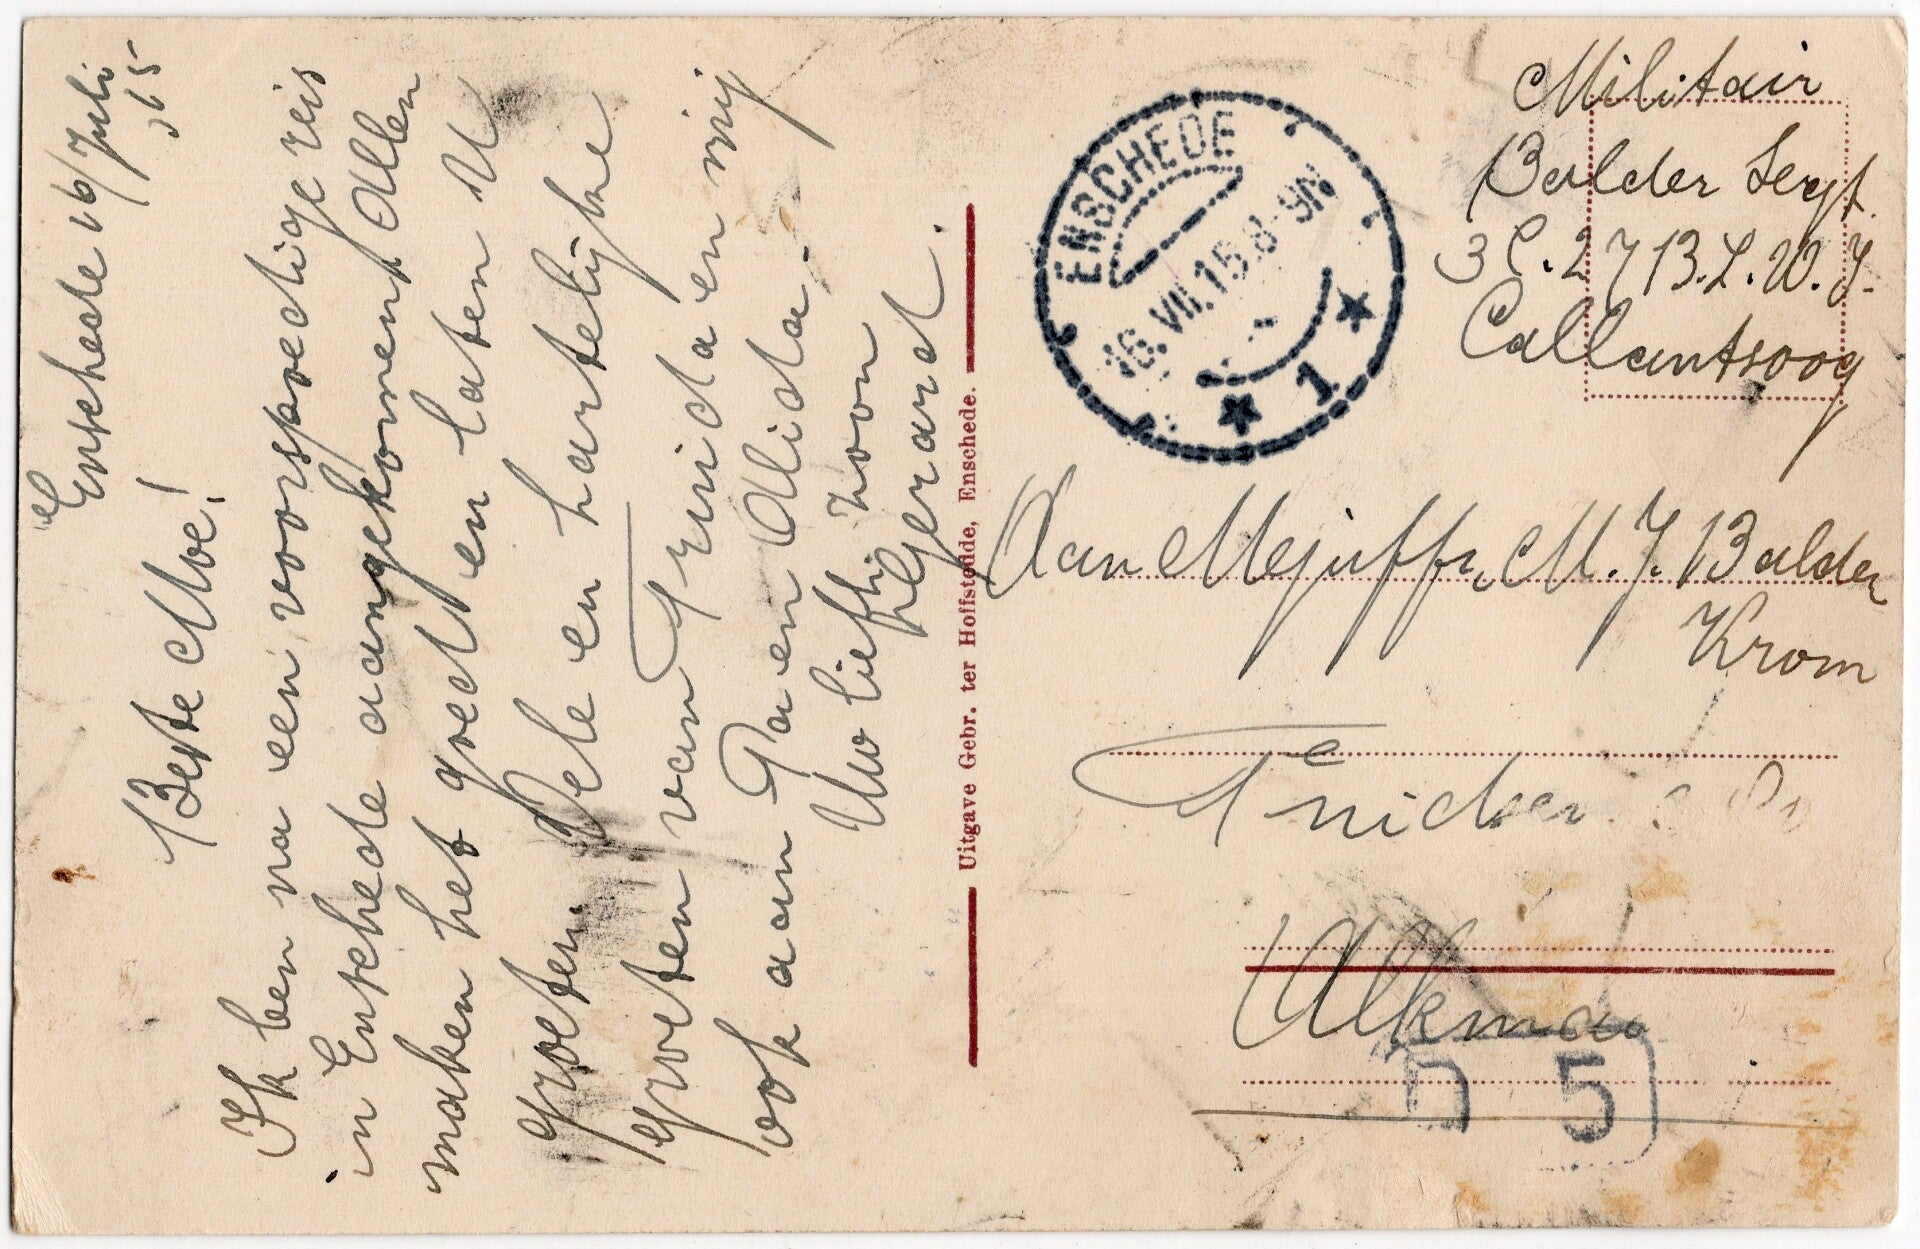 Enschede 16/Juli
15
Beste Moe!
Ik ben na een voorspoedige reis
in Enschede aangekomen Allen
maken het goed en laten U
groeten. Vele en hartelijke
groeten van Truida en mij
ook aan Pa en Alida.
Uw liefh. zoon
Gerard.
Uitgave Gebr. ter Hoffstedde, Enschede.
ENSCHEDE
16.VII.15.8-9N
1
Militair
Balder Sergt.
3 C. 27 B. L. W. J.
Callantsoog
Aan Mejuffr. M. J. Balder
Krom
Alkmaar
5